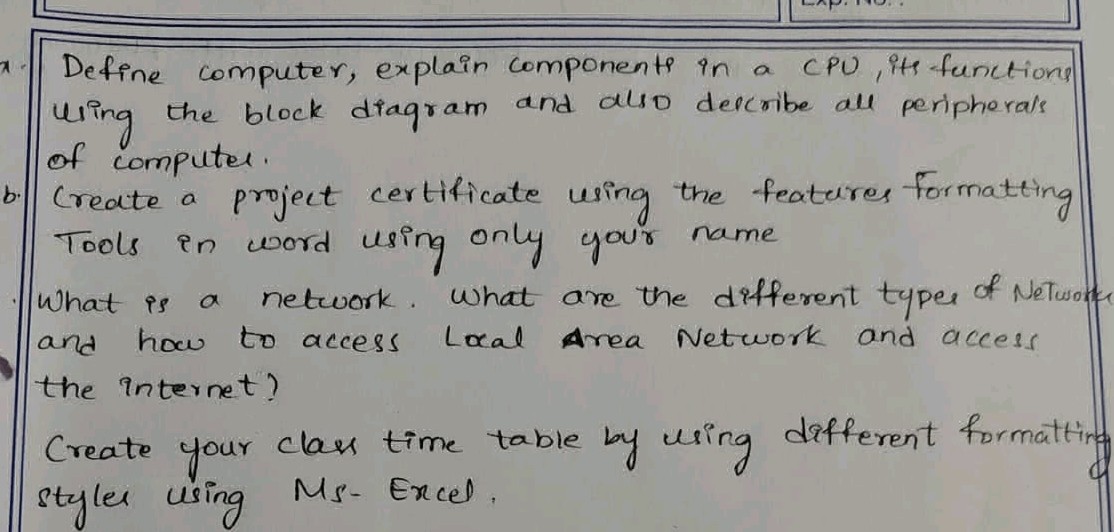 Exp. No. :
a. Define computer, explain components in a CPU, its functions
using the block diagram and also describe all peripherals
of computer.
b. Create a project certificate using the features formatting
Tools in word using only your name
What is a network. What are the different types of NeTworks
and how to access Local Area Network and access
the internet?
Create your class time table by using different formatting
styles using Ms- Excel.